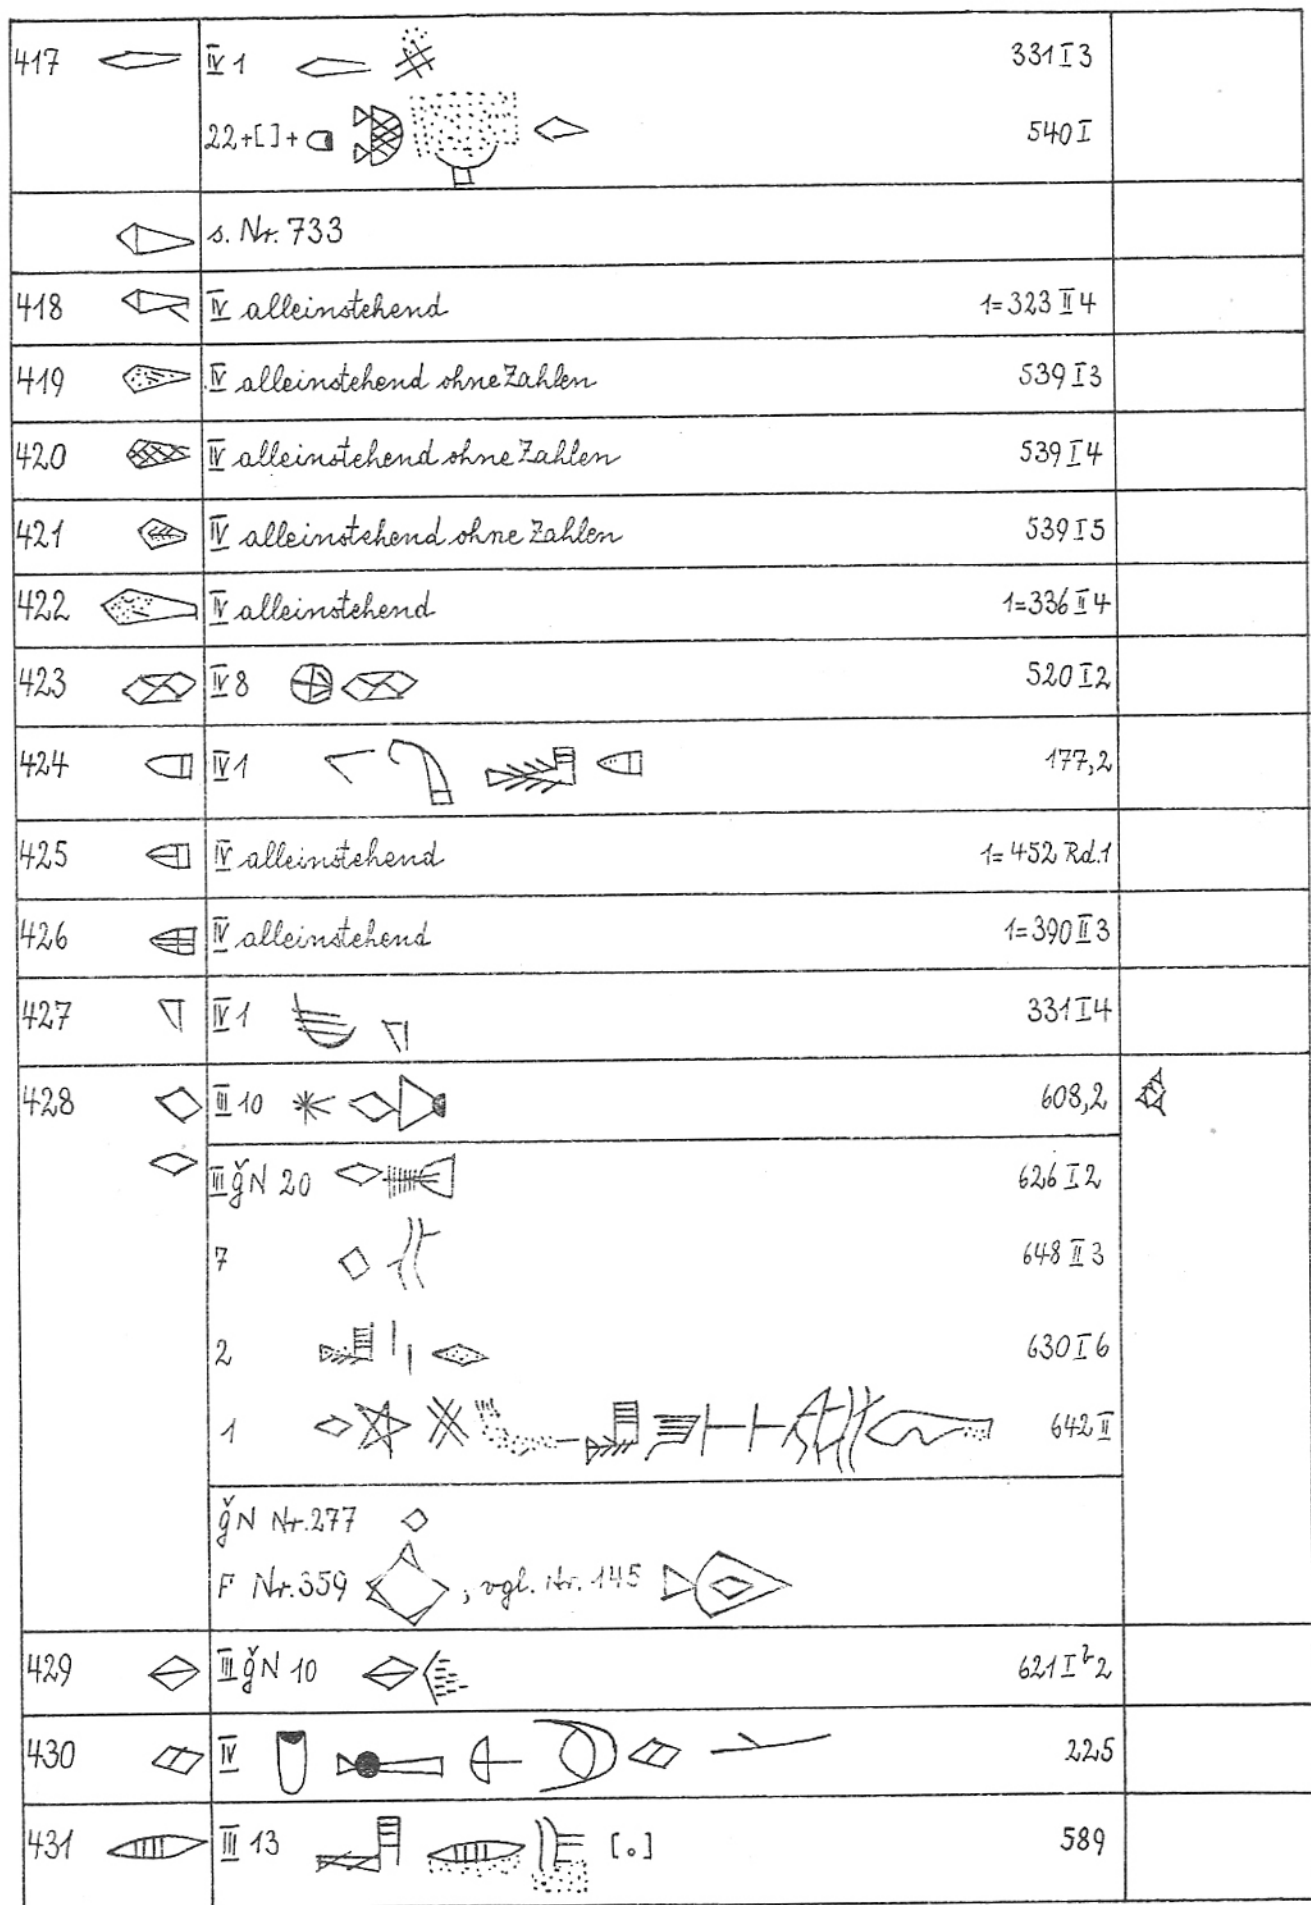 417 IV 1 331 I 3
22+[ ]+ 540 I
s. Nr. 733
418 IV alleinstehend 1=323 II 4
419 IV alleinstehend ohne Zahlen 539 I 3
420 IV alleinstehend ohne Zahlen 539 I 4
421 IV alleinstehend ohne Zahlen 539 I 5
422 IV alleinstehend 1=336 II 4
423 IV 8 520 I 2
424 IV 1 177,2
425 IV alleinstehend 1=452 Rd.1
426 IV alleinstehend 1=390 II 3
427 IV 1 331 I 4
428 III 10 608,2
III ǧN 20 626 I 2
7 648 II 3
2 630 I 6
1 642 II
ǧN Nr.277
F Nr.359 , vgl. Nr. 145
429 III ǧN 10 621 I 2
430 IV 225
431 III 13 [.] 589